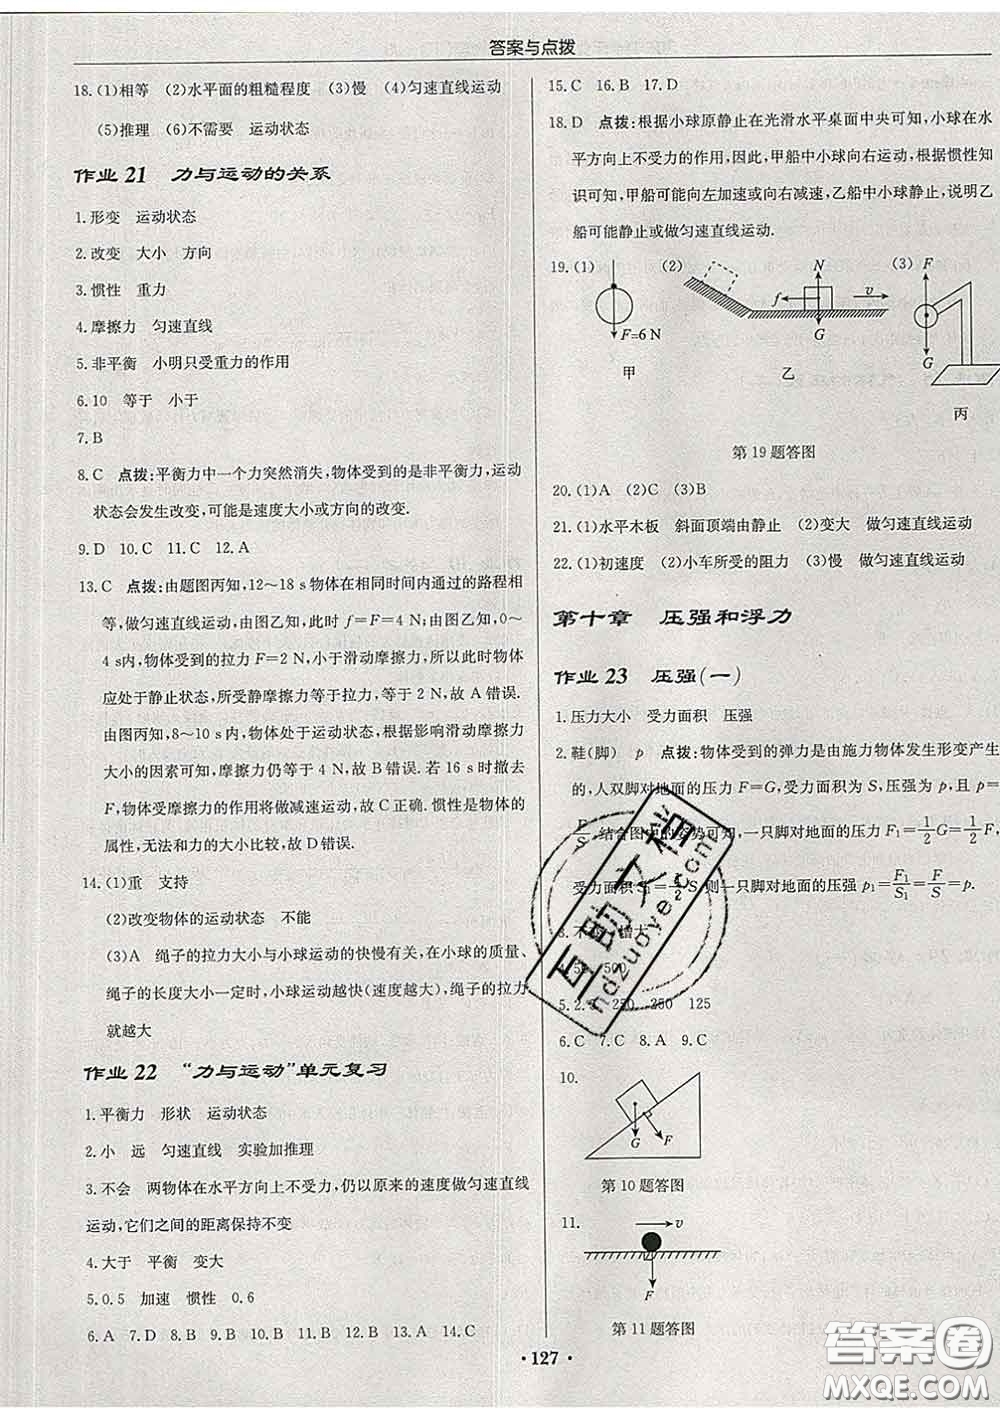 答案与点拨
18.(1)相等　(2)水平面的粗糙程度　(3)慢　(4)匀速直线运动
(5)推理　(6)不需要　运动状态
作业 21　力与运动的关系
1.形变　运动状态
2.改变　大小　方向
3.惯性　重力
4.摩擦力　匀速直线
5.非平衡　小明只受重力的作用
6.10　等于　小于
7.B
8.C　点拨:平衡力中一个力突然消失,物体受到的是非平衡力,运动
状态会发生改变,可能是速度大小或方向的改变.
9.D　10.C　11.C　12.A
13.C　点拨:由题图丙知,12～18 s物体在相同时间内通过的路程相
等,做匀速直线运动,由图乙知,此时 f=F=4 N;由图乙知,0～
4 s内,物体受到的拉力 F=2 N,小于滑动摩擦力,所以此时物体
应处于静止状态,所受静摩擦力等于拉力,等于 2 N,故 A 错误.
由图丙知,8～10 s内,物体处于运动状态,根据影响滑动摩擦力
大小的因素可知,摩擦力仍等于 4 N,故 B 错误. 若 16 s时撤去
F,物体受摩擦力的作用将做减速运动,故 C 正确. 惯性是物体的
属性,无法和力的大小比较,故 D 错误.
14.(1)重　支持
(2)改变物体的运动状态　不能
(3)A　绳子的拉力大小与小球运动的快慢有关,在小球的质量、
绳子的长度大小一定时,小球运动越快(速度越大),绳子的拉力
就越大
作业 22　“力与运动”单元复习
1.平衡力　形状　运动状态
2.小　远　匀速直线　实验加推理
3.不会　两物体在水平方向上不受力,仍以原来的速度做匀速直线
运动,它们之间的距离保持不变
4.大于　平衡　变大
5.0.5　加速　惯性　0.6
6.A　7.D　8.B　9.B　10.B　11.B　12.A　13.A　14.C
15.C　16.B　17.D
18.D　点拨:根据小球原静止在光滑水平桌面中央可知,小球在水
平方向上不受力的作用,因此,甲船中小球向右运动,根据惯性知
识可知,甲船可能向左加速或向右减速,乙船中小球静止,说明乙
船可能静止或做匀速直线运动.
19.(1)　(2)　(3)
F=6 N　f　N　G　v　F　G
甲　乙　丙
第19题答图
20.(1)A　(2)C　(3)B
21.(1)水平木板　斜面顶端由静止　(2)变大　做匀速直线运动
22.(1)初速度　(2)小车所受的阻力　(3)慢　做匀速直线运动
第十章　压强和浮力
作业 23　压强(一)
1.压力大小　受力面积　压强
2.鞋(脚)　p　点拨:物体受到的弹力是由施力物体发生形变产生
的,人双脚对地面的压力 F=G,受力面积为 S,压强为 p,且 p=
F/S,结合图中的姿势可知,一只脚对地面的压力 F₁=1/2G=1/2F,
受力面积 S₁=1/2S,则一只脚对地面的压强 p₁=F₁/S₁=F/S=p.
3.不　增大
4.　500
5.2.　250　250　125
6.C　7.C　8.A　9.C
10.
G　F
第10题答图
11.
v
F
第11题答图
• 127 •
互助文档
hdzuoye.com
答案圈
MXQE.COM